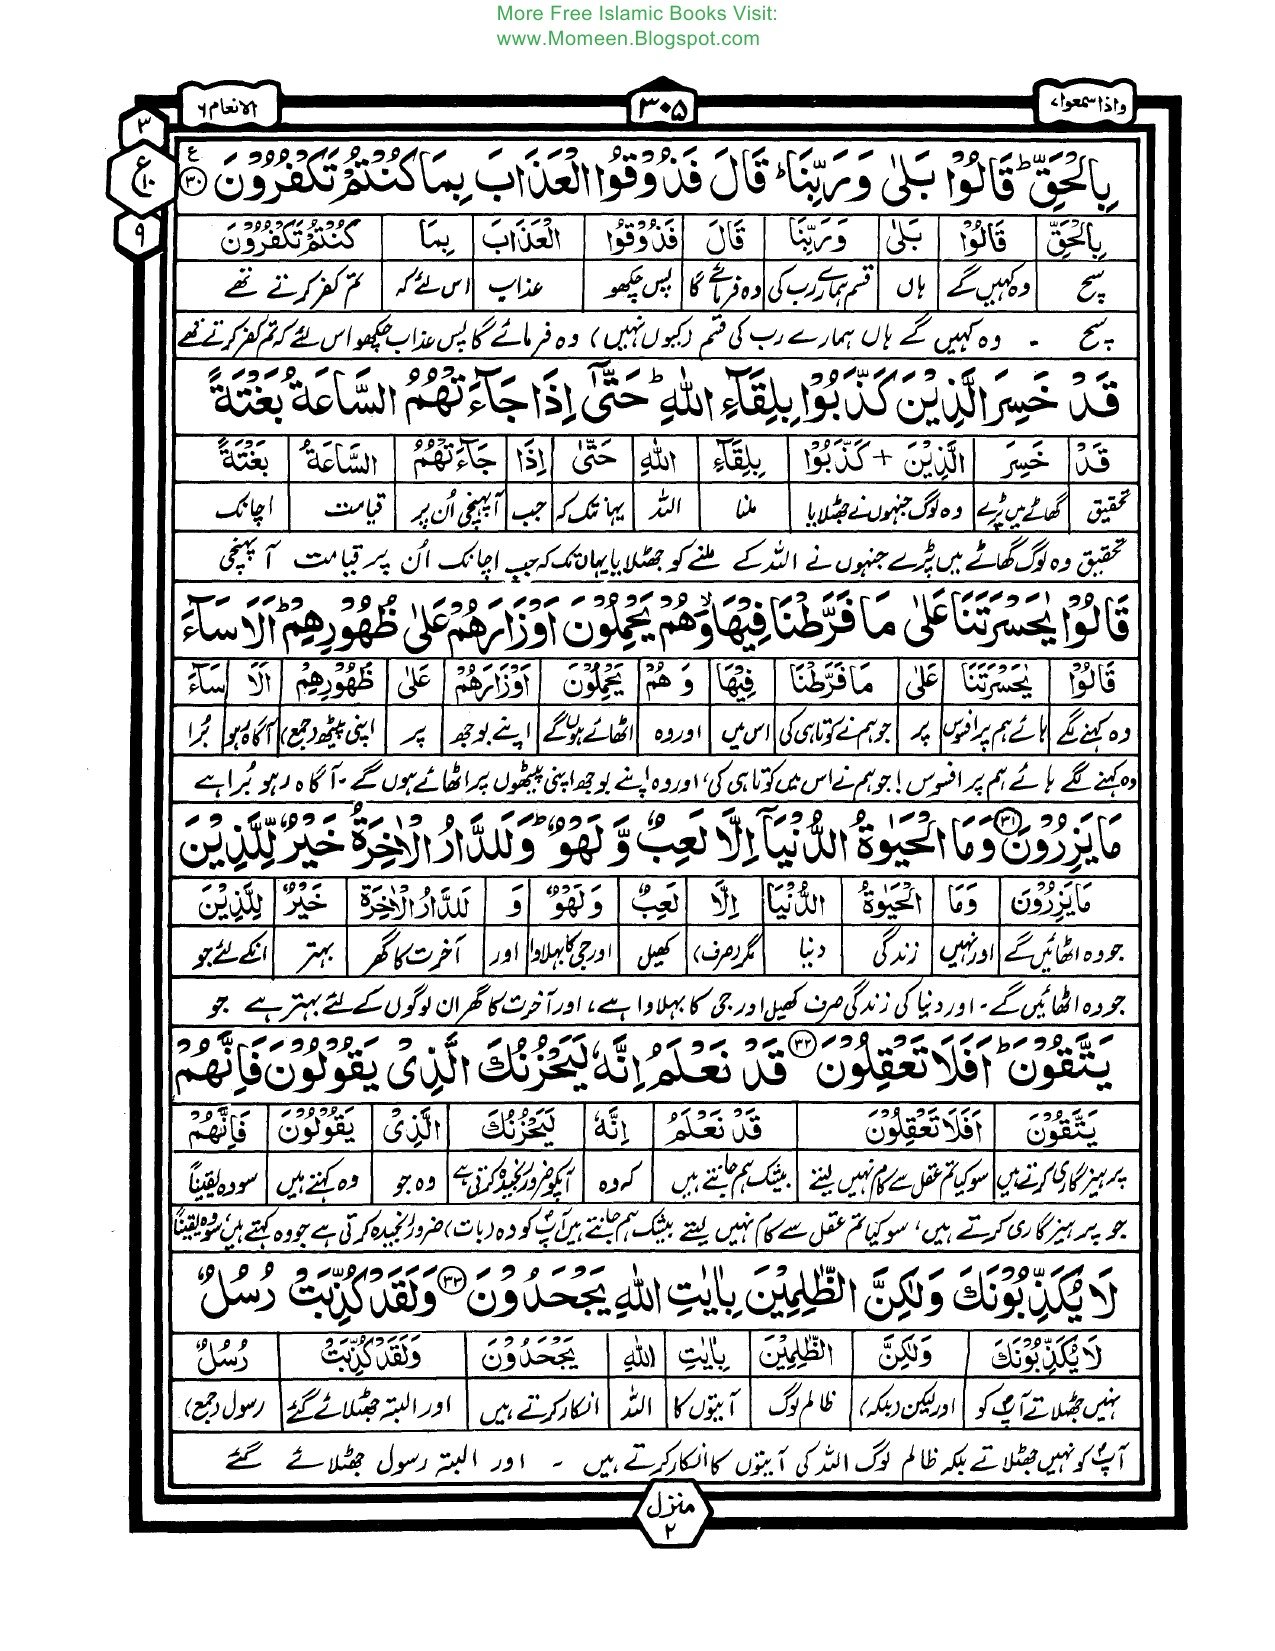 More Free Islamic Books Visit:
www.Momeen.Blogspot.com
واذا سمعوا ۷
۳۰۵
الانعام ۶
۳
ع
۱۰
۹
بِالْحَقِّ ؕ قَالُوْا بَلٰی وَ رَبِّنَا ؕ قَالَ فَذُوْقُوا الْعَذَابَ بِمَا كُنْتُمْ تَكْفُرُوْنَ ۳۰ ع
بِالْحَقِّ قَالُوْا بَلٰی وَرَبِّنَا قَالَ فَذُوْقُوا الْعَذَابَ بِمَا كُنْتُمْ تَكْفُرُوْنَ
سچ وہ کہیں گے ہاں قسم ہمارے رب کی وہ فرمائے گا پس چکھو عذاب اس لئے کہ تم کفر کرتے تھے
سچ ۔ وہ کہیں گے ہاں ہمارے رب کی قسم (کیوں نہیں) وہ فرمائے گا پس عذاب چکھو اس لئے کہ تم کفر کرتے تھے
قَدْ خَسِرَ الَّذِیْنَ كَذَّبُوْا بِلِقَآءِ اللّٰهِ ؕ حَتّٰۤی اِذَا جَآءَتْهُمُ السَّاعَةُ بَغْتَةً
قَدْ خَسِرَ الَّذِیْنَ + كَذَّبُوْا بِلِقَآءِ اللّٰهِ حَتّٰی اِذَا جَآءَتْهُمُ السَّاعَةُ بَغْتَةً
تحقیق گھاٹے میں پڑے وہ لوگ جنہوں نے جھٹلایا ملنا اللہ یہانتک کہ جب آپہنچی اُن پر قیامت اچانک
تحقیق وہ لوگ گھاٹے میں پڑے جنہوں نے اللہ کے ملنے کو جھٹلایا یہاں تک کہ جب اچانک اُن پر قیامت آپہنچی
قَالُوْا یٰحَسْرَتَنَا عَلٰی مَا فَرَّطْنَا فِیْهَا ۙ وَهُمْ یَحْمِلُوْنَ اَوْزَارَهُمْ عَلٰی ظُهُوْرِهِمْ ؕ اَلَا سَآءَ
قَالُوْا یٰحَسْرَتَنَا عَلٰی مَا فَرَّطْنَا فِیْهَا وَ هُمْ یَحْمِلُوْنَ اَوْزَارَهُمْ عَلٰی ظُهُوْرِهِمْ اَلَا سَآءَ
وہ کہنے لگے ہائے ہم پر افسوس پر جو ہم نے کوتاہی کی اس میں اور وہ اٹھائے ہوں گے اپنے بوجھ پر اپنی پیٹھ (جمع) آگاہ رہو بُرا
وہ کہنے لگے ہائے ہم پر افسوس! جو ہم نے اس میں کوتاہی کی، اور وہ اپنے بوجھ اپنی پیٹھوں پر اٹھائے ہوں گے ۔ آگاہ رہو بُرا ہے
مَا یَزِرُوْنَ ۳۱ وَمَا الْحَیٰوةُ الدُّنْیَاۤ اِلَّا لَعِبٌ وَّ لَهْوٌ ؕ وَلَلدَّارُ الْاٰخِرَةُ خَیْرٌ لِّلَّذِیْنَ
مَا یَزِرُوْنَ وَمَا الْحَیٰوةُ الدُّنْیَا اِلَّا لَعِبٌ وَلَهْوٌ وَ لَلدَّارُ الْاٰخِرَةُ خَیْرٌ لِلَّذِیْنَ
جو وہ اٹھائیں گے اور نہیں زندگی دنیا مگر (صرف) کھیل اور جی کا بہلاوا اور آخرت کا گھر بہتر انکے لئے جو
جو وہ اٹھائیں گے ۔ اور دنیا کی زندگی صرف کھیل اور جی کا بہلاوا ہے، اور آخرت کا گھر ان لوگوں کے لئے بہتر ہے جو
یَتَّقُوْنَ ؕ اَفَلَا تَعْقِلُوْنَ ۳۲ قَدْ نَعْلَمُ اِنَّهٗ لَیَحْزُنُكَ الَّذِیْ یَقُوْلُوْنَ فَاِنَّهُمْ
یَتَّقُوْنَ اَفَلَا تَعْقِلُوْنَ قَدْ نَعْلَمُ اِنَّهٗ لَیَحْزُنُكَ الَّذِیْ یَقُوْلُوْنَ فَاِنَّهُمْ
پرہیزگاری کرتے ہیں سو کیا تم عقل سے کام نہیں لیتے بیشک ہم جانتے ہیں کہ وہ آپکو ضرور رنجیدہ کرتی ہے وہ جو وہ کہتے ہیں سو وہ یقیناً
جو پرہیزگاری کرتے ہیں، سو کیا تم عقل سے کام نہیں لیتے بیشک ہم جانتے ہیں آپؐ کو وہ (بات) ضرور رنجیدہ کرتی ہے جو وہ کہتے ہیں، سو وہ یقیناً
لَا یُكَذِّبُوْنَكَ وَلٰكِنَّ الظّٰلِمِیْنَ بِاٰیٰتِ اللّٰهِ یَجْحَدُوْنَ ۳۳ وَلَقَدْ كُذِّبَتْ رُسُلٌ
لَا یُكَذِّبُوْنَكَ وَلٰكِنَّ الظّٰلِمِیْنَ بِاٰیٰتِ اللّٰهِ یَجْحَدُوْنَ وَلَقَدْ كُذِّبَتْ رُسُلٌ
نہیں جھٹلاتے آپؐ کو اور لیکن (بلکہ) ظالم لوگ آیتوں کا اللہ انکار کرتے ہیں اور البتہ جھٹلائے گئے رسول (جمع)
آپؐ کو نہیں جھٹلاتے بلکہ ظالم لوگ اللہ کی آیتوں کا انکار کرتے ہیں ۔ اور البتہ رسول جھٹلائے گئے
منزل
۲